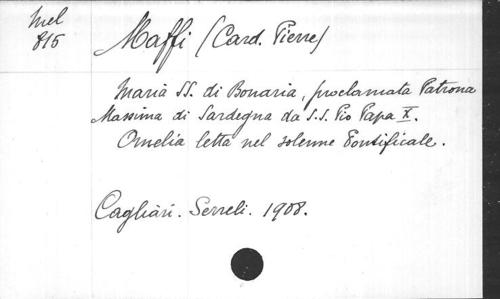 Mel
816
Maffi (Card. Pierre)
Maria SS. di Bonaria, proclamata Patrona
Massima di Sardegna da S.S. Pio Papa X.
Omelia letta nel solenne Pontificale.
Cagliari. Serreli. 1908.